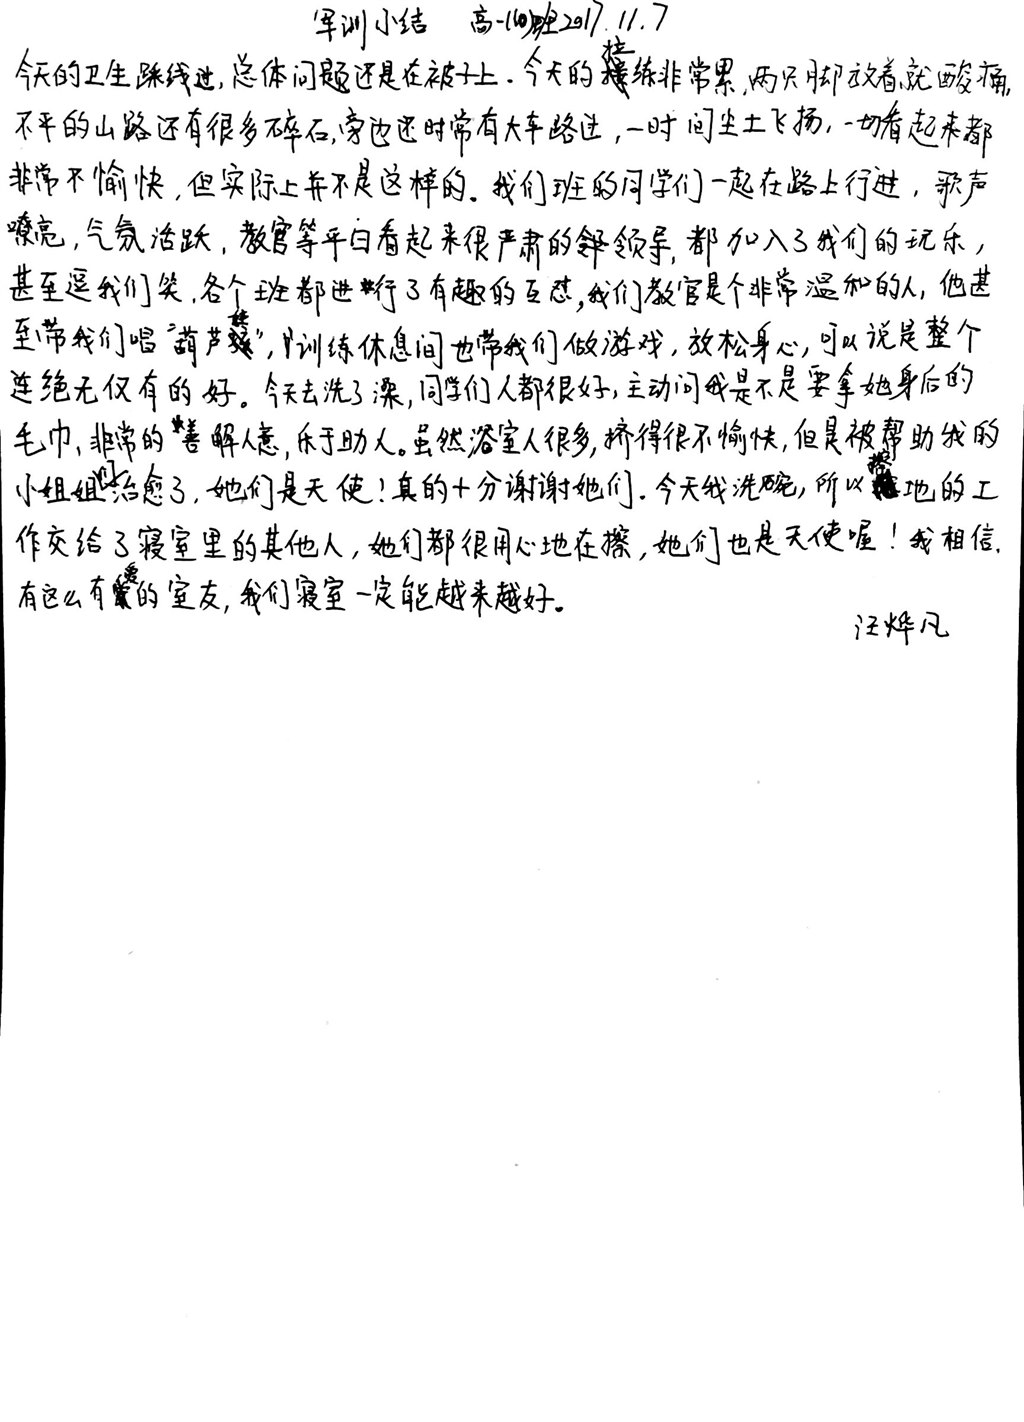 军训小结 高一(10)班2017.11.7
今天的卫生踩线过,总体问题还是在被子上.今天的拉练非常累,两只脚放着就酸痛,
不平的山路还有很多碎石,旁边还时常有大车路过,一时间尘土飞扬,一切看起来都
非常不愉快,但实际上并不是这样的。我们班的同学们一起在路上行进,歌声
嘹亮,气氛活跃,教官等平白看起来很严肃的领导,都加入了我们的玩乐,
甚至逗我们笑,各个班都进行了有趣的互怼,我们教官是个非常温和的人,他甚
至带我们唱“葫芦娃”,训练休息间也带我们做游戏,放松身心,可以说是整个
连绝无仅有的好。今天去洗了澡,同学们人都很好,主动问我是不是要拿她身后的
毛巾,非常的善解人意,乐于助人。虽然浴室人很多,挤得很不愉快,但是被帮助我的
小姐姐们治愈了,她们是天使!真的十分谢谢她们.今天我洗碗,所以擦地的工
作交给了寝室里的其他人,她们都很用心地在擦,她们也是天使喔!我相信,
有这么有爱的室友,我们寝室一定能越来越好。
汪烨凡